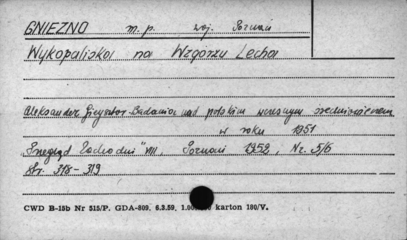 GNIEZNO m. p. woj. Poznań
Wykopaliska na Wzgórzu Lecha
Aleksander Gieysztor - Badania nad polskim wczesnym średniowieczem
w roku 1951
Przegląd Zachodni" VIII, Poznań 1952, Nr. 5/6
str. 318 - 319
CWD B-15b Nr 515/P. GDA-809. 6.3.59, 1.000 karton 180/V.